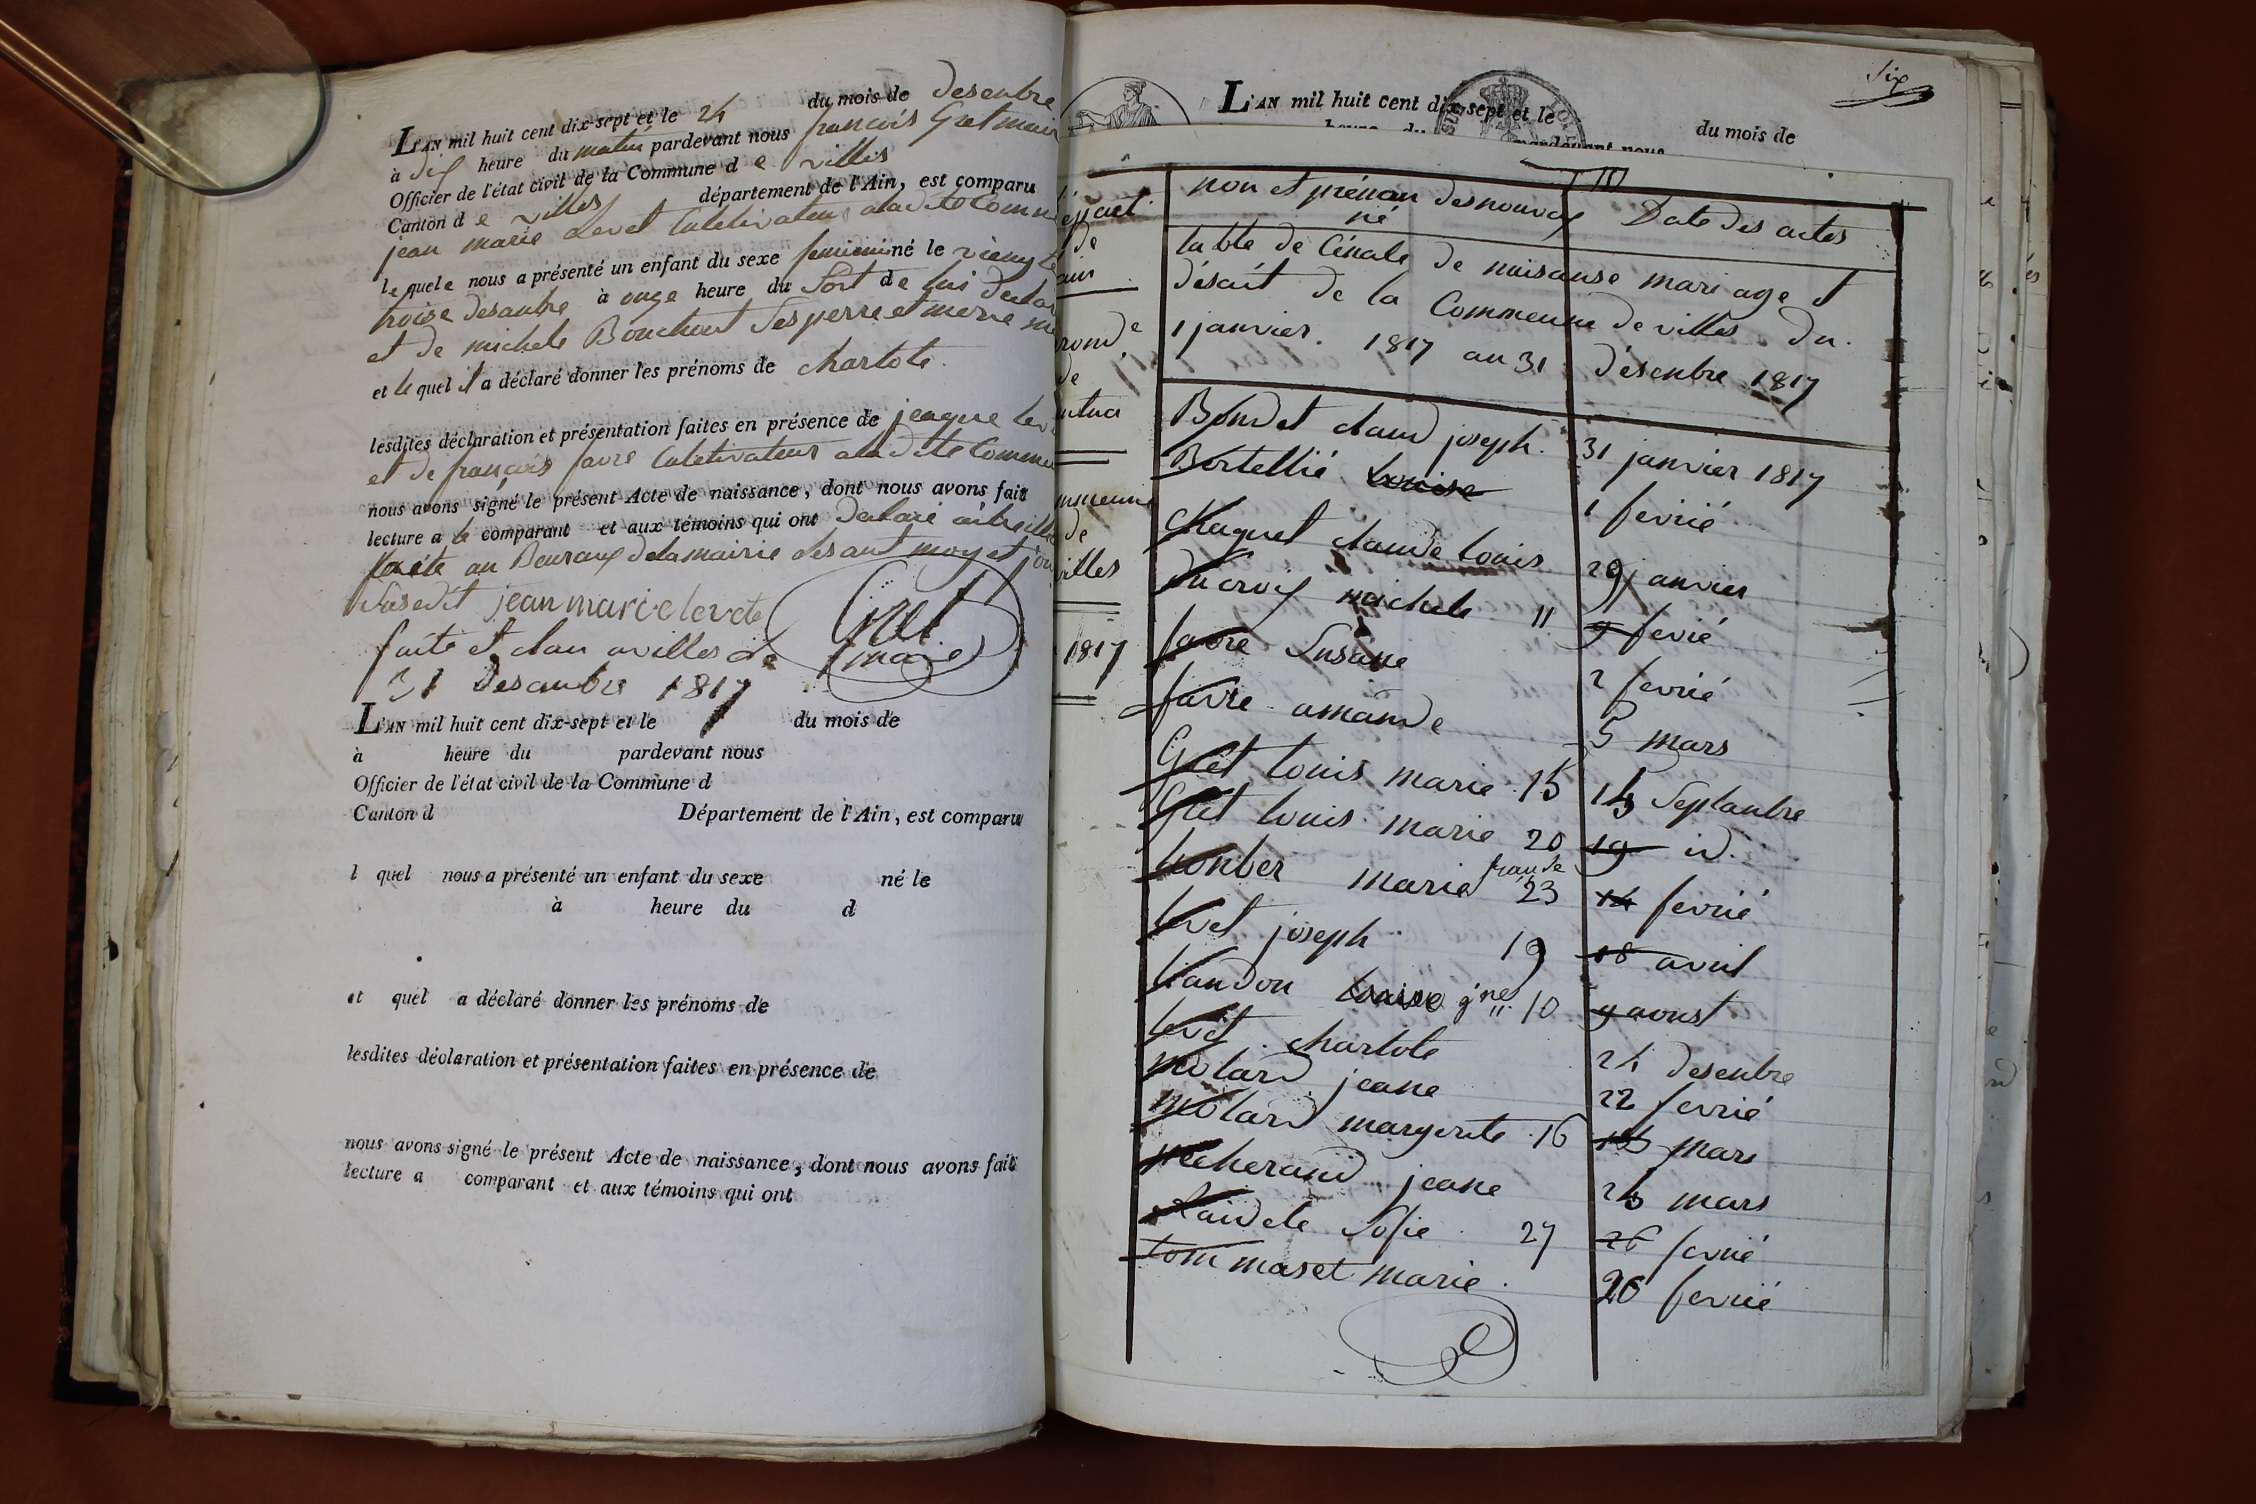 L'AN mil huit cent dix-sept et le 24 du mois de desenbre
à dix heure du matin pardevant nous francois Gret mair
Officier de l'état civil de la Commune d e villes
Canton d e villes département de l'Ain, est comparu
jean marie Levet Cultivateur a la dite Comm
le quele nous a présenté un enfant du sexe feminin né le
troise desanbre à onze heure du Sort de lui
et de michele Bouchout Ses perre et merre
et le quel il a déclaré donner les prénoms de charlote.
lesdites déclaration et présentation faites en présence de jacque
et de françois favre Cultivateurs a la dite Commu
nous avons signé le présent Acte de naissance, dont nous avons fait
lecture a le comparant et aux témoins qui ont
faite au Bauraux de la mairie et jou
Susedit jean marie levete
faite et clau a villes le
31 desanbre 1817
Gret
maire
L'AN mil huit cent dix-sept et le du mois de
à heure du pardevant nous
Officier de l'état civil de la Commune d
Canton d Département de l'Ain, est comparu
l quel nous a présenté un enfant du sexe né le
à heure du d
et quel a déclaré donner les prénoms de
lesdites déclaration et présentation faites en présence de
nous avons signé le présent Acte de naissance, dont nous avons fait
lecture a comparant et aux témoins qui ont
Six
L'AN mil huit cent dix-sept et le
du mois de
heure du
pardevant nous
de
de
de
villes
1817
non et prénon des nouvox né Date des actes
table de Cénale de naisanse mariage et
désait de la Commeune de villes du
1 janvier. 1817 au 31 désenbre 1817
Bondet claud joseph. 31 janvier 1817
Bortellié Louise 1 fevrié
Chaquet claude louis 29 janvier
ducroix michele 11 9 fevié
favre Susane 2 fevrié
favre amande 5 mars
Gret louis marie 15 14 Septanbre
Gret louis marie 20 19 id.
honber marie franse 23 14 fevrié
levet joseph 19 18 avril
liandon Louise 10 9 aoust
levet charlote 24 desenbre
molard jeane 22 fevrié
molard margerite 16 15 mars
jeane 24 mars
Sofie 27 26 fevrié
tommaset marie. 26 fevrié